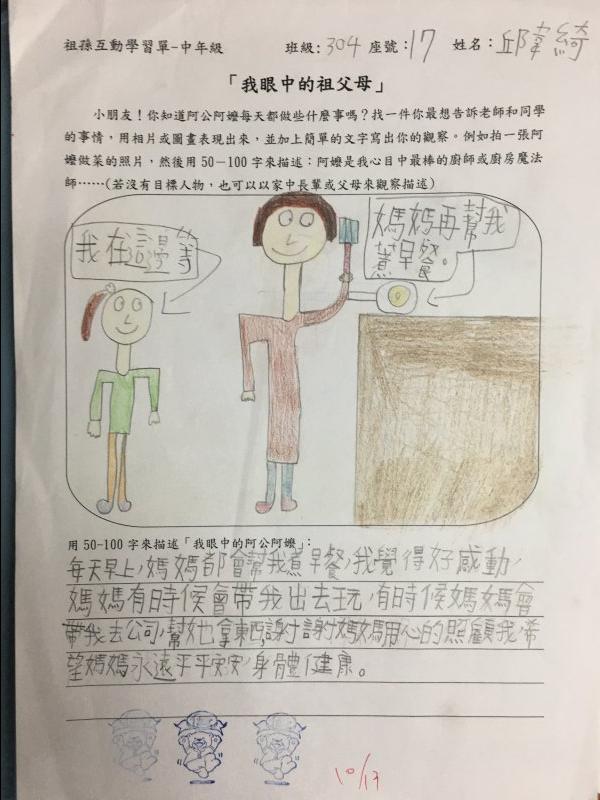 祖孫互動學習單-中年級 班級：304 座號：17 姓名：邱韋綺
「我眼中的祖父母」
小朋友！你知道阿公阿嬤每天都做些什麼事嗎？找一件你最想告訴老師和同學
的事情，用相片或圖畫表現出來，並加上簡單的文字寫出你的觀察。例如拍一張阿
嬤做菜的照片，然後用 50－100 字來描述：阿嬤是我心目中最棒的廚師或廚房魔法
師……(若沒有目標人物，也可以以家中長輩或父母來觀察描述)
我在這邊等
媽媽再幫我
煮早餐。
用 50-100 字來描述「我眼中的阿公阿嬤」：
每天早上，媽媽都會幫我煮早餐，我覺得好感動，
媽媽有時候會帶我出去玩，有時候媽媽會
帶我去公司，幫她拿東西，謝謝媽媽用心的照顧我，希
望媽媽永遠平平安安，身體健康。
10/17